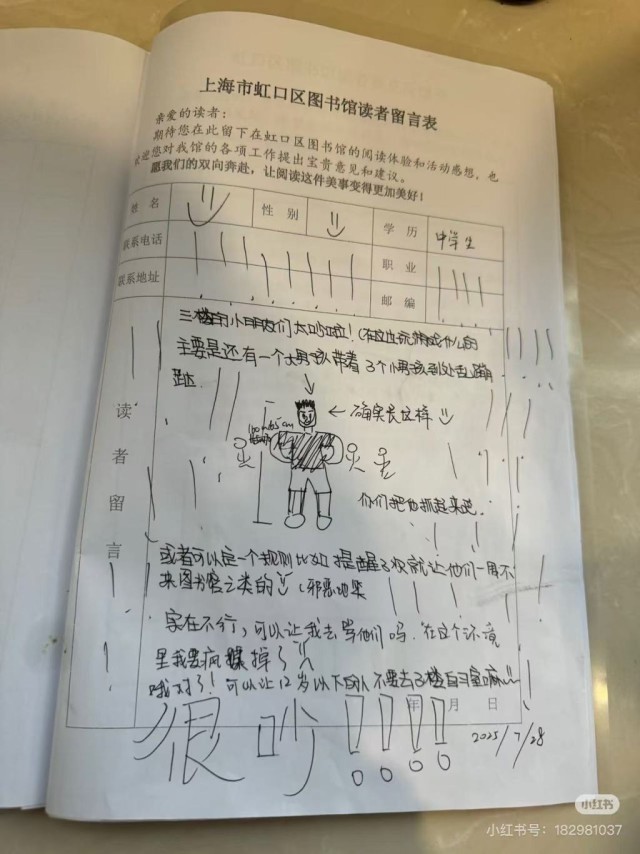 上海市虹口区图书馆读者留言表
亲爱的读者：
期待您在此留下在虹口区图书馆的阅读体验和活动感想。也
欢迎您对我馆的各项工作提出宝贵意见和建议。
愿我们的双向奔赴，让阅读这件美事变得更加美好！
姓 名 性 别 学 历 中学生
联系电话 职 业
联系地址 邮 编
读者留言
三楼的小朋友们太吵啦！(在这边玩游戏什么的
主要是还有一个大男孩带着3个小男孩到处乱蹦
跶
← 确实长这样
你们把他抓起来吧.
或者可以定一个规则比如提醒3次就让他们一周不
来图书馆之类的 (邪恶地笑
实在不行，可以让我去学他们吗. 在这个环境
里我要疯掉了
哦对了！可以让12岁以下的人不要去3楼自习室嘛~
年 月 日
很吵！！！！
2025/7/28
小红书
小红书号：182981037